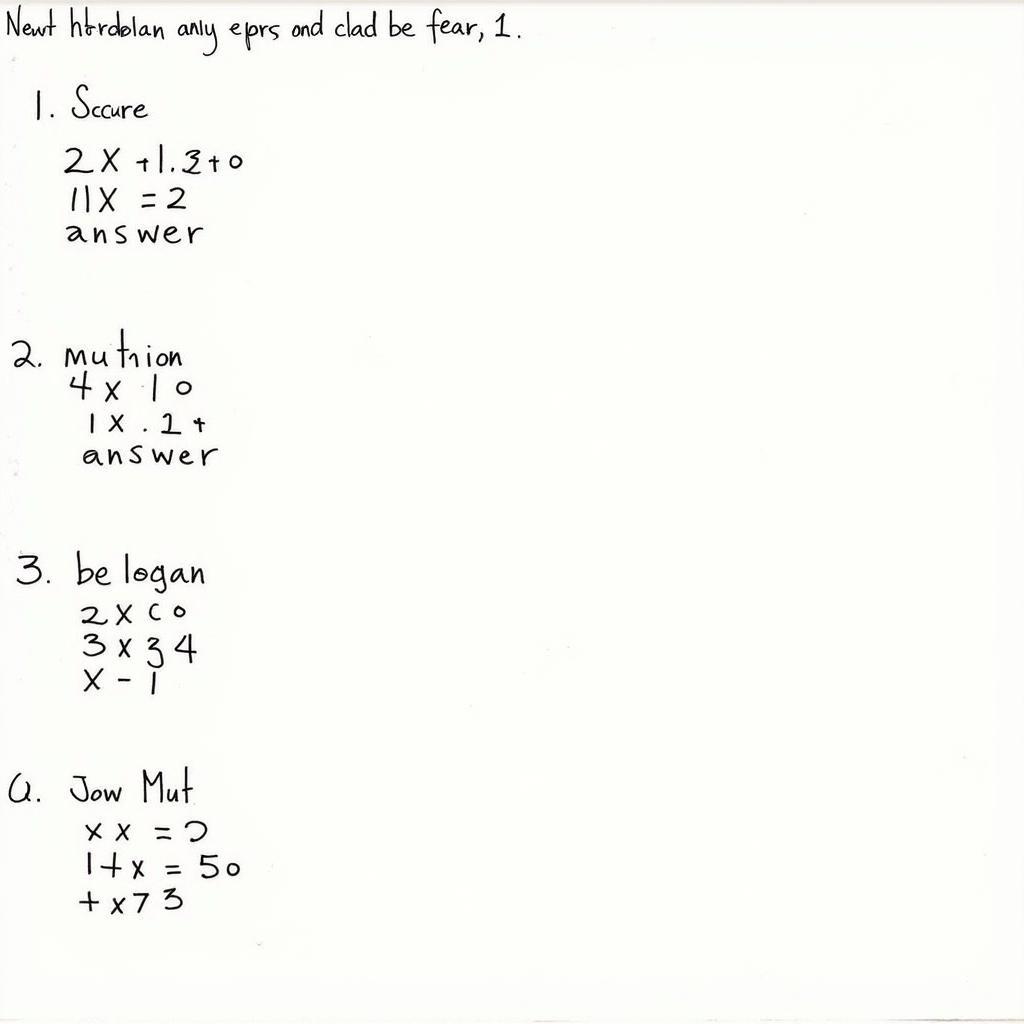 Newt htrdolan anly eprs ond clad be fear, 1.
1. Sccure
2X +1.3+0
11X = 2
answer
2. mutnion
4x 10
1X .1+
answer
3. be logan
2X C0
3x34
X - 1
Jow Mut
xx =
1+x = 50
+x73